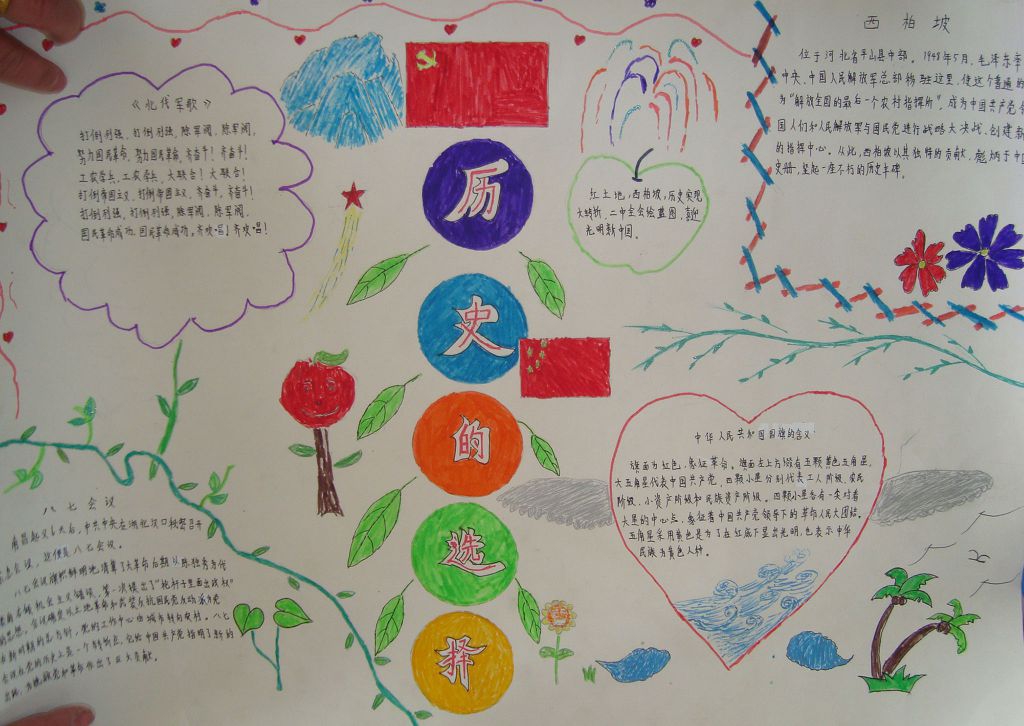 西柏坡
位于河北省平山县中部。1948年5月,毛泽东率
中央、中国人民解放军总部移驻这里,使这个普通的
为“解放全国的最后一个农村指挥所”,成为中国共产党
国人们和人民解放军与国民党进行战略大决战,创建新
的指挥中心。从此,西柏坡以其独特的贡献,彪炳于中国
史册,竖起一座不朽的历史丰碑。
《北伐军歌》
打倒列强、打倒列强,除军阀、除军阀。
努力国民革命、努力国民革命,齐奋斗!齐奋斗!
工农学兵、工农学兵、大联合!大联合!
打倒帝国主义、打倒帝国主义、齐奋斗、齐奋斗!
打倒列强、打倒列强、除军阀、除军阀,
国民革命成功、国民革命成功,齐欢唱!齐欢唱!
红土地,西柏坡,历史实现
大转折,二中全会绘蓝图,喜迎
光明新中国。
历
史
的
选
择
中华人民共和国国旗的含义
旗面为红色,象征革命。旗面左上方缀有五颗黄色五角星,
大五角星代表中国共产党,四颗小星分别代表工人阶级、农民
阶级、小资产阶级和民族资产阶级。四颗小星各有一尖对着
大星的中心点,象征着中国共产党领导下的革命人民大团结。
五角星采用黄色是为了在红底下显出光明,也表示中华
民族为黄色人种。
八七会议
南昌起义6天后,中共中央在湖北汉口秘密召开
急会议,这便是八七会议。
八七会议旗帜鲜明地清算了大革命后期以陈独秀为代
右倾机会主义错误,第一次提出了“枪杆子里面出政权”
的思想,会议确定以土地革命和武装反抗国民党反动派为党
在新时期的总方针,党的工作中心由城市转向农村。八七
会议在党的历史上是一个转折点,它给中国共产党指明了新的
出路,为挽救党和革命作出了巨大贡献。